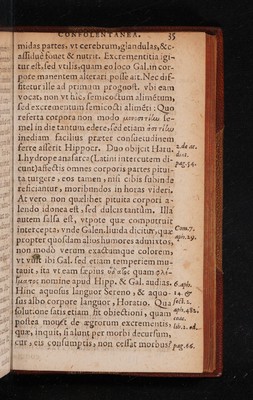 CONFOLENTANEA. 35
midas partes, vt cerebrum, glandulas, &c.
assiduè fouet & nutrit. Excrementitia igi-
tur est, sed vtilis, quam eo loco Gal. in cor-
pore manentem alterari posse ait. Nec dif-
fitetur ille ad primum prognost. vbi eam
vocat, non vt hîc, semicoctum alimētum,
sed excrementum semicocti alimēti: Quo
referta corpora non modo se-
mel in die tantum edere, sed etiam
inediam facilius præter consuetudinem
ferre asserit Hippocr. Duo obijcit Haru.
Lhydrope anasarca (Latini intercutem di-
cunt) affectis omnes corporis partes pitui-
ta turgere, eos tamen, nisi cibis subinde
reficiantur, moribundos in horas videri.
At vero non quælibet pituita corpori a-
lendo idonea est, sed dulcis tantùm. Illa
autem falsa est, vtpote quæ computruit
intercepta, vnde Galen. liuida dicitur, quæ
propter quosdam alius humores admixtos,
non modò verum exactumque colorem,
vt vult ibi Gal. sed etiam temperiem mu-
tauit, ita vt eam sæpius quam
nomine apud Hipp. & Gal. audias.
Hinc aquosus languor Sereno, & aquo-
sus albo corpore languor, Horatio. Qua
solutione satis etiam fit obiectioni, quam
postea mouet de ægrorum excrementis,
quæ, inquit, si alunt per morbi decursum,
cur, eis consumptis, non cessat morbus?
2. de ac.
pag. 54.
Com. 7.
aph. 29.
6. aph.
14. &
sect. 2.
aph. 482.
coac.
lib. 2. od.
pag. 66.